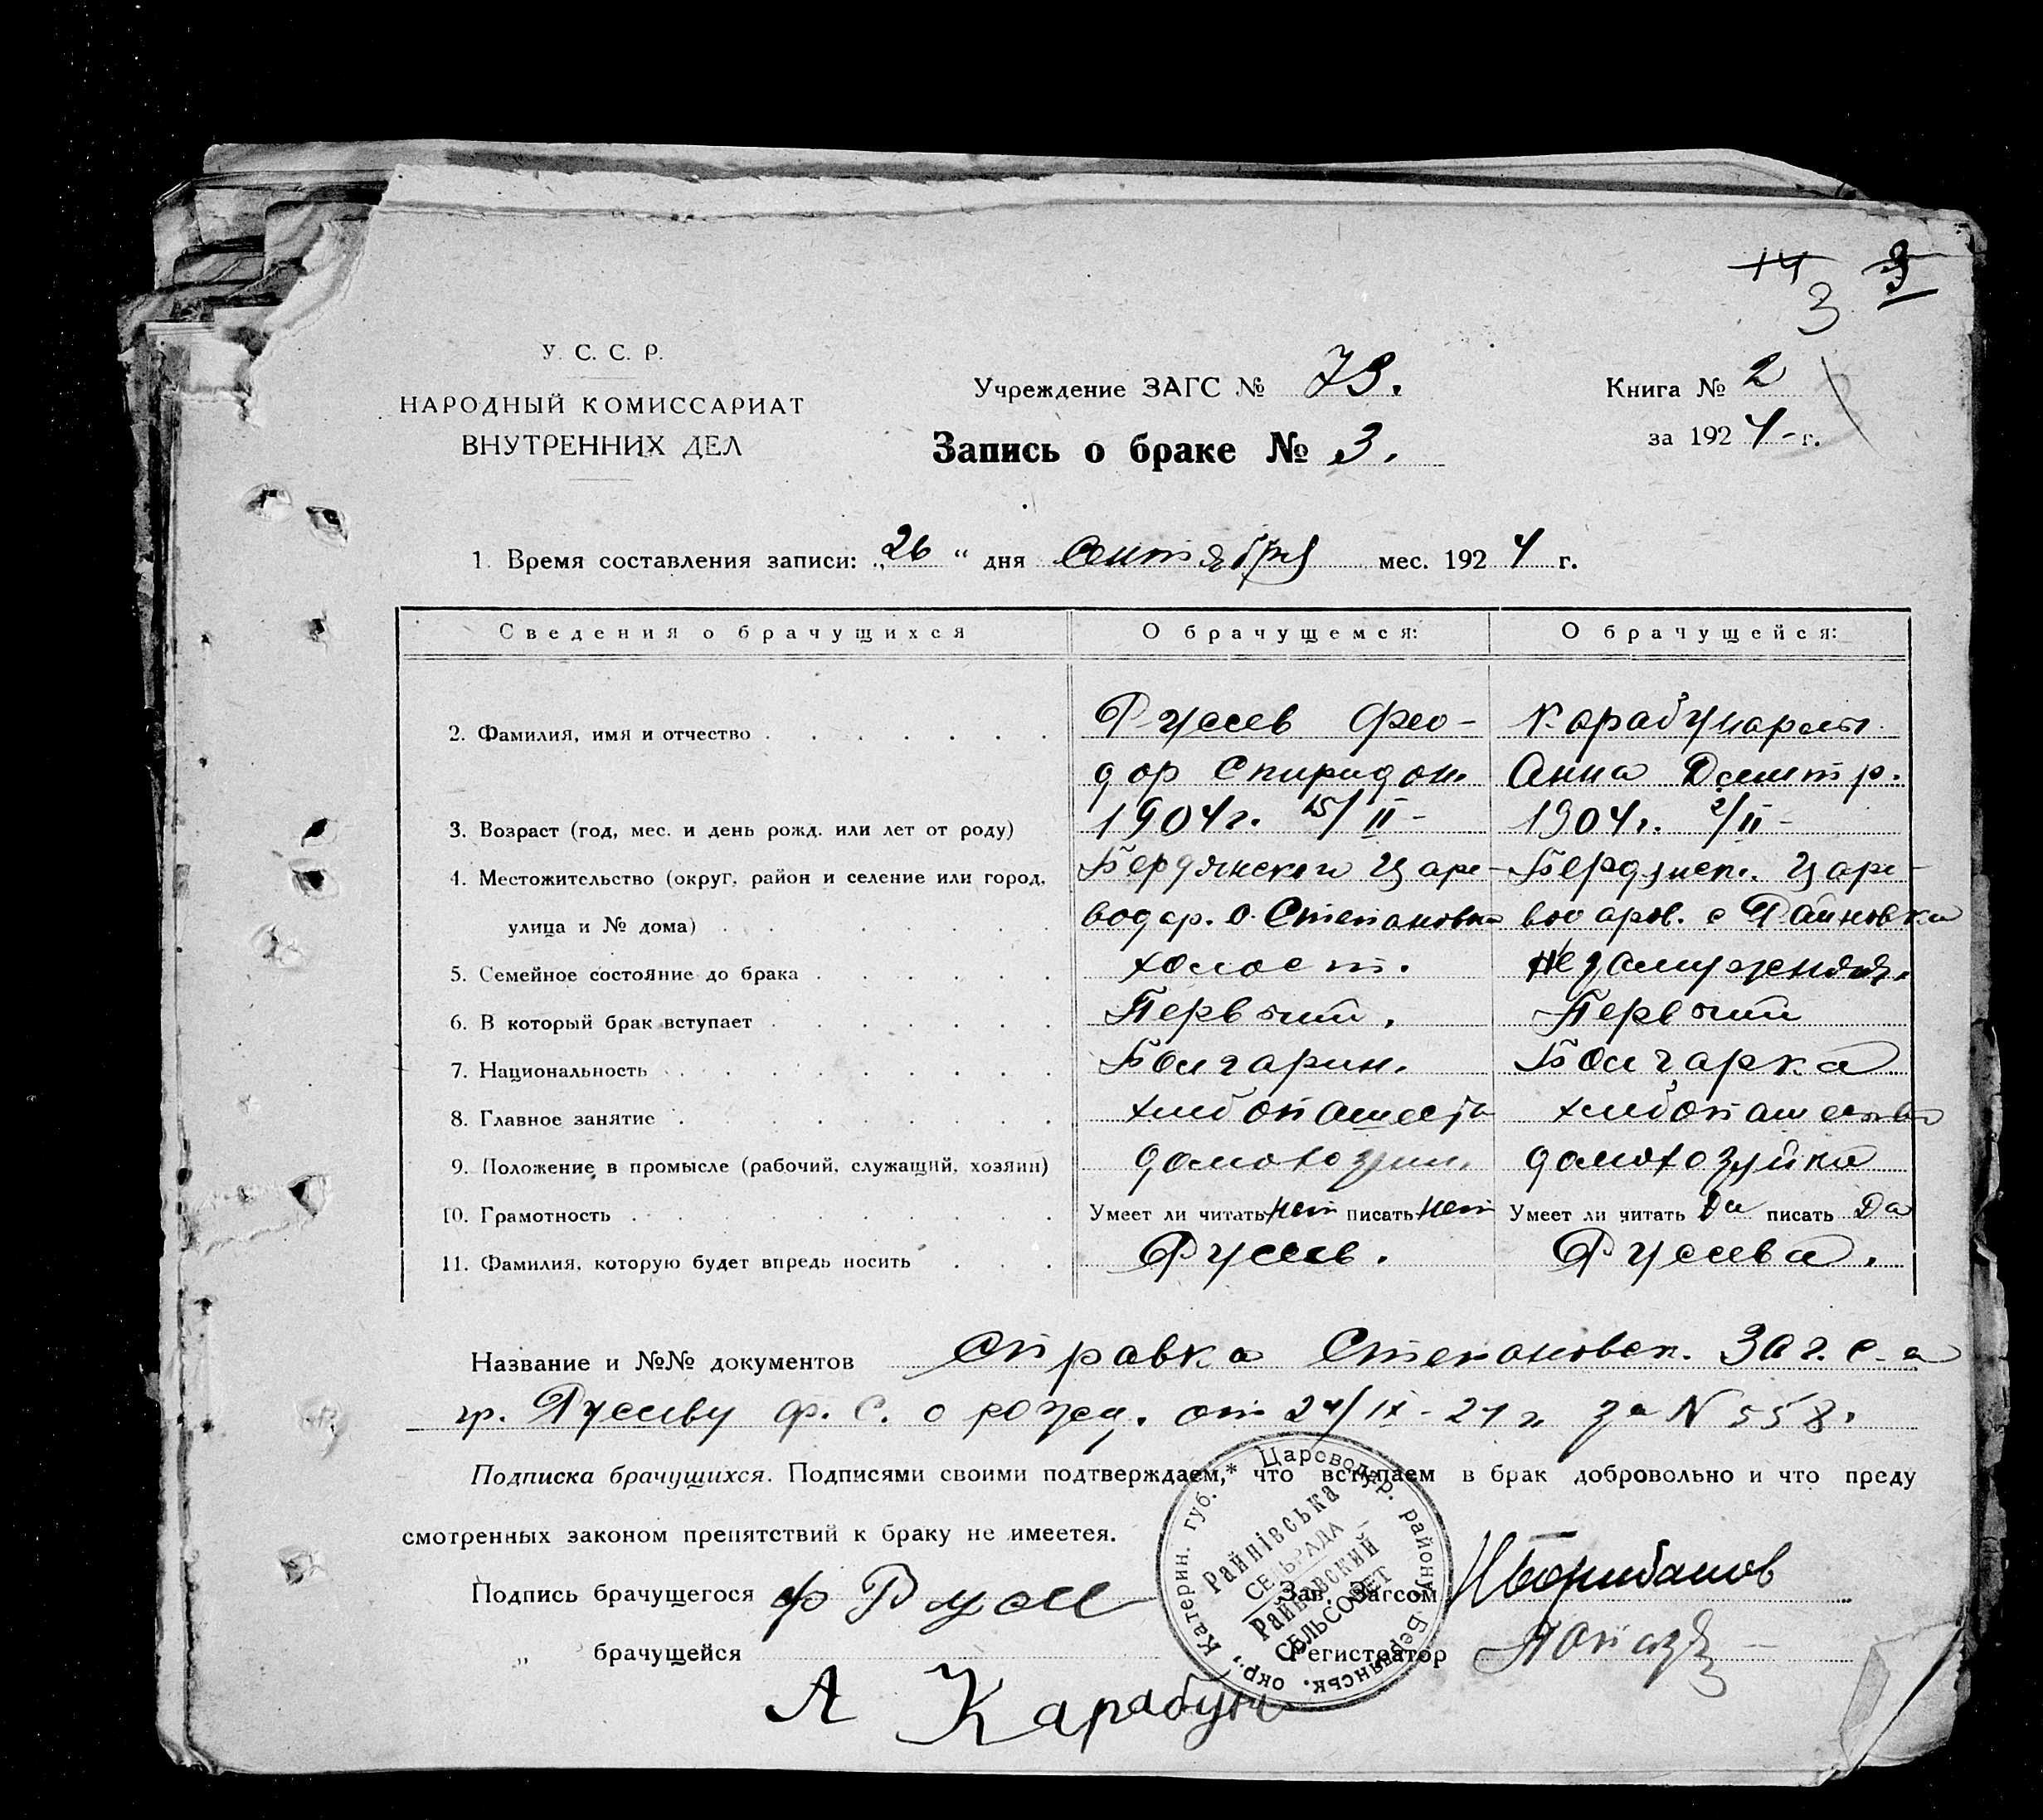 14 3
3
У. С. С. Р.
НАРОДНЫЙ КОМИССАРИАТ
ВНУТРЕННИХ ДЕЛ
Учреждение ЗАГС № 73.
Книга № 2
за 1924 г.
Запись о браке № 3.
1. Время составления записи: „26“ дня Сентября мес. 1924 г.
Сведения о брачущихся О брачущемся: О брачущейся:
2. Фамилия, имя и отчество Русев Фео- Карабунарлы
дор Спиридон. Анна Дмитр.
3. Возраст (год, мес. и день рожд. или лет от роду) 1904 г. 15/II- 1904 г. 2/II-
4. Местожительство (округ, район и селение или город, Бердянского Царе- Бердянск. Царе-
улица и № дома) водар. с. Степановка водаров. с Райновка
5. Семейное состояние до брака холост. незамужняя.
6. В который брак вступает Первый. Первый
7. Национальность Болгарин. Болгарка
8. Главное занятие хлибопашество хлибопашество
9. Положение в промысле (рабочий, служащий, хозяин) домохозяин. домохозуйка
10. Грамотность Умеет ли читать нет писать нет Умеет ли читать Да писать Да
11. Фамилия, которую будет впредь носить Русев. Русева.
Название и №№ документов Справка Степановск. Загс-а
гр. Русеву Ф. С. о рожд. от 24/IX-24 г. за N 558.
Подписка брачущихся. Подписями своими подтверждаем, что вступаем в брак добровольно и что преду
смотренных законом препятствий к браку не имеется.
Катерин. губ. * Царсводар. району Бердянськ. окр.,
Райнівська
СЕЛЬРАДА
Райновский
СЕЛЬСОВЕТ
Подпись брачущегося Ф Русе
Зав. Загсом
„ брачущейся
Регистратор
А Карабун